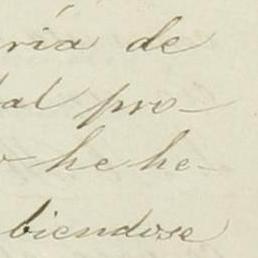 ría de
al pro-
he he-
biendose